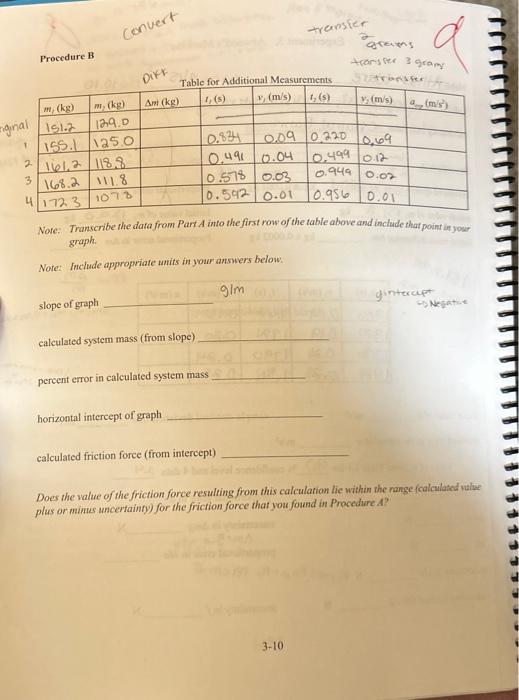 convert
transfer
2 grams
a
Procedure B
transfer 3 grams
Diff
Table for Additional Measurements
transfer
m₁ (kg) m₂ (kg) Δm (kg) t₁ (s) v₁ (m/s) t₂ (s) v₂ (m/s) (m/s²)
151.2 129.0
1 155.1 125.0 0.834 0.09 0.220 0.69
2 161.2 118.8 0.491 0.04 0.499 0.12
3 168.2 111.8 0.578 0.03 0.949 0.02
4 172.3 107.8 0.592 0.01 0.956 0.01
Note: Transcribe the data from Part A into the first row of the table above and include that point in your
graph.
Note: Include appropriate units in your answers below.
g/m
y-intercept
slope of graph
↳ Negative
calculated system mass (from slope)
percent error in calculated system mass
horizontal intercept of graph
calculated friction force (from intercept)
Does the value of the friction force resulting from this calculation lie within the range (calculated value
plus or minus uncertainty) for the friction force that you found in Procedure A?
3-10